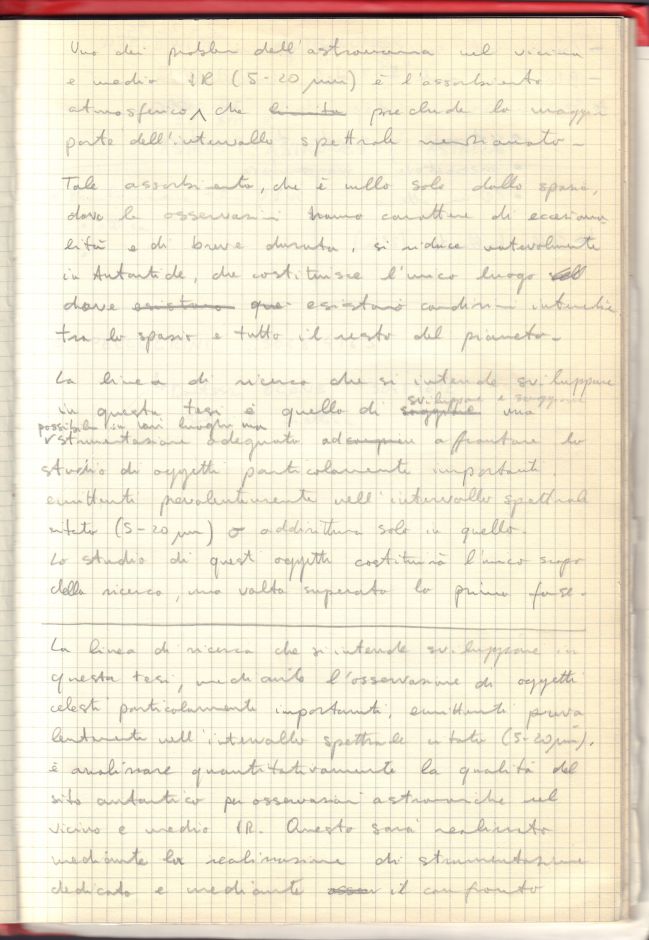 Uno dei problemi dell'astronomia nel vicino
e medio IR (5-20 µm) è l'assorbimento
atmosferico, che limita preclude la maggior
parte dell'intervallo spettrale menzionato.
Tale assorbimento, che è nullo solo dallo spazio,
dove le osservazioni hanno carattere di eceziona
lità e di breve durata, si riduce notevolmente
in Antartide, che costituisce l'unico luogo
dove esistano esistano condizioni intermedie
tra lo spazio e tutto il resto del pianeta.
La linea di ricerca che si intende sviluppare
in questa tesi è quella di sviluppare e una
possibile in vari luoghi ma
strumentazione adeguata ad affrontare lo
studio di oggetti particolarmente importanti
emittenti prevalentemente nell'intervallo spettrale
citato (5-20 µm) o addirittura solo in quello.
Lo studio di questi oggetti costituirà l'unico scopo
della ricerca, una volta superata la prima fase.
La linea di ricerca che si intende sviluppare in
questa tesi, mediante l'osservazione di oggetti
celesti particolarmente importanti, emittenti preva
lentemente nell'intervallo spettrale citato (5-20 µm).
è analizzare quantitativamente la qualità del
sito antartico per osservazioni astronomiche nel
vicino e medio IR. Questo sarà realizzato
mediante la realizzazione di strumentazione
dedicata e mediante il confronto